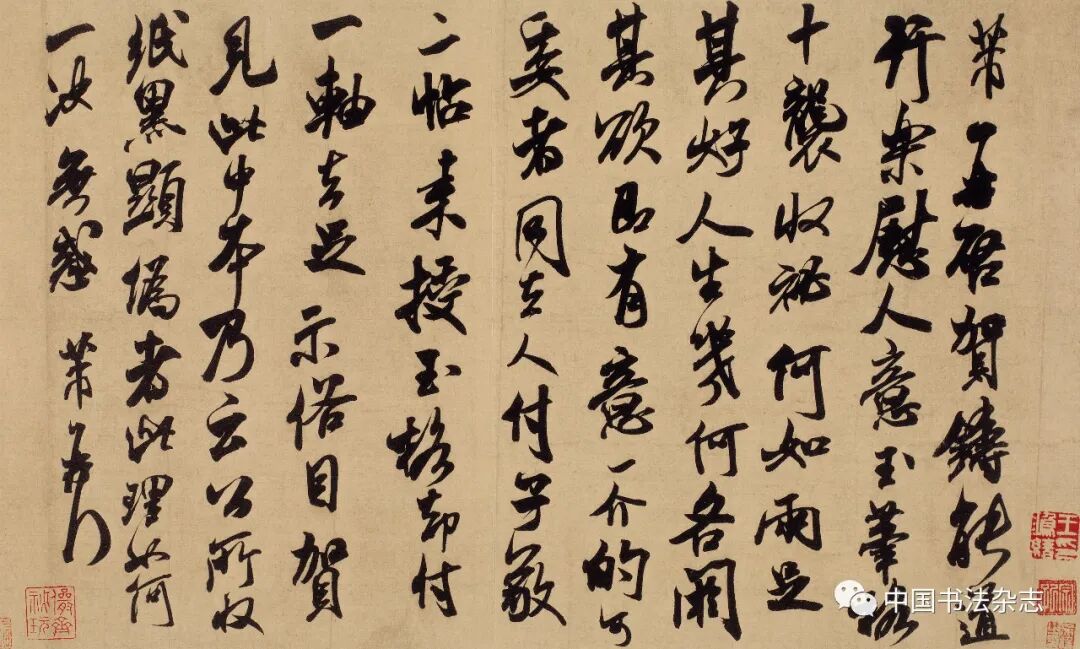 芾再啓賀鑄能道
行樂慰人意玉筆格
十襲收秘何如兩足
其好人生幾何各闕
其欲即有意一介的可
委者同去人付子敬
二帖來授玉格却付
一軸去足示俗目賀
見此中本乃云公所收
紙黑顯偽者此理如何
一決無惑芾
中国书法杂志